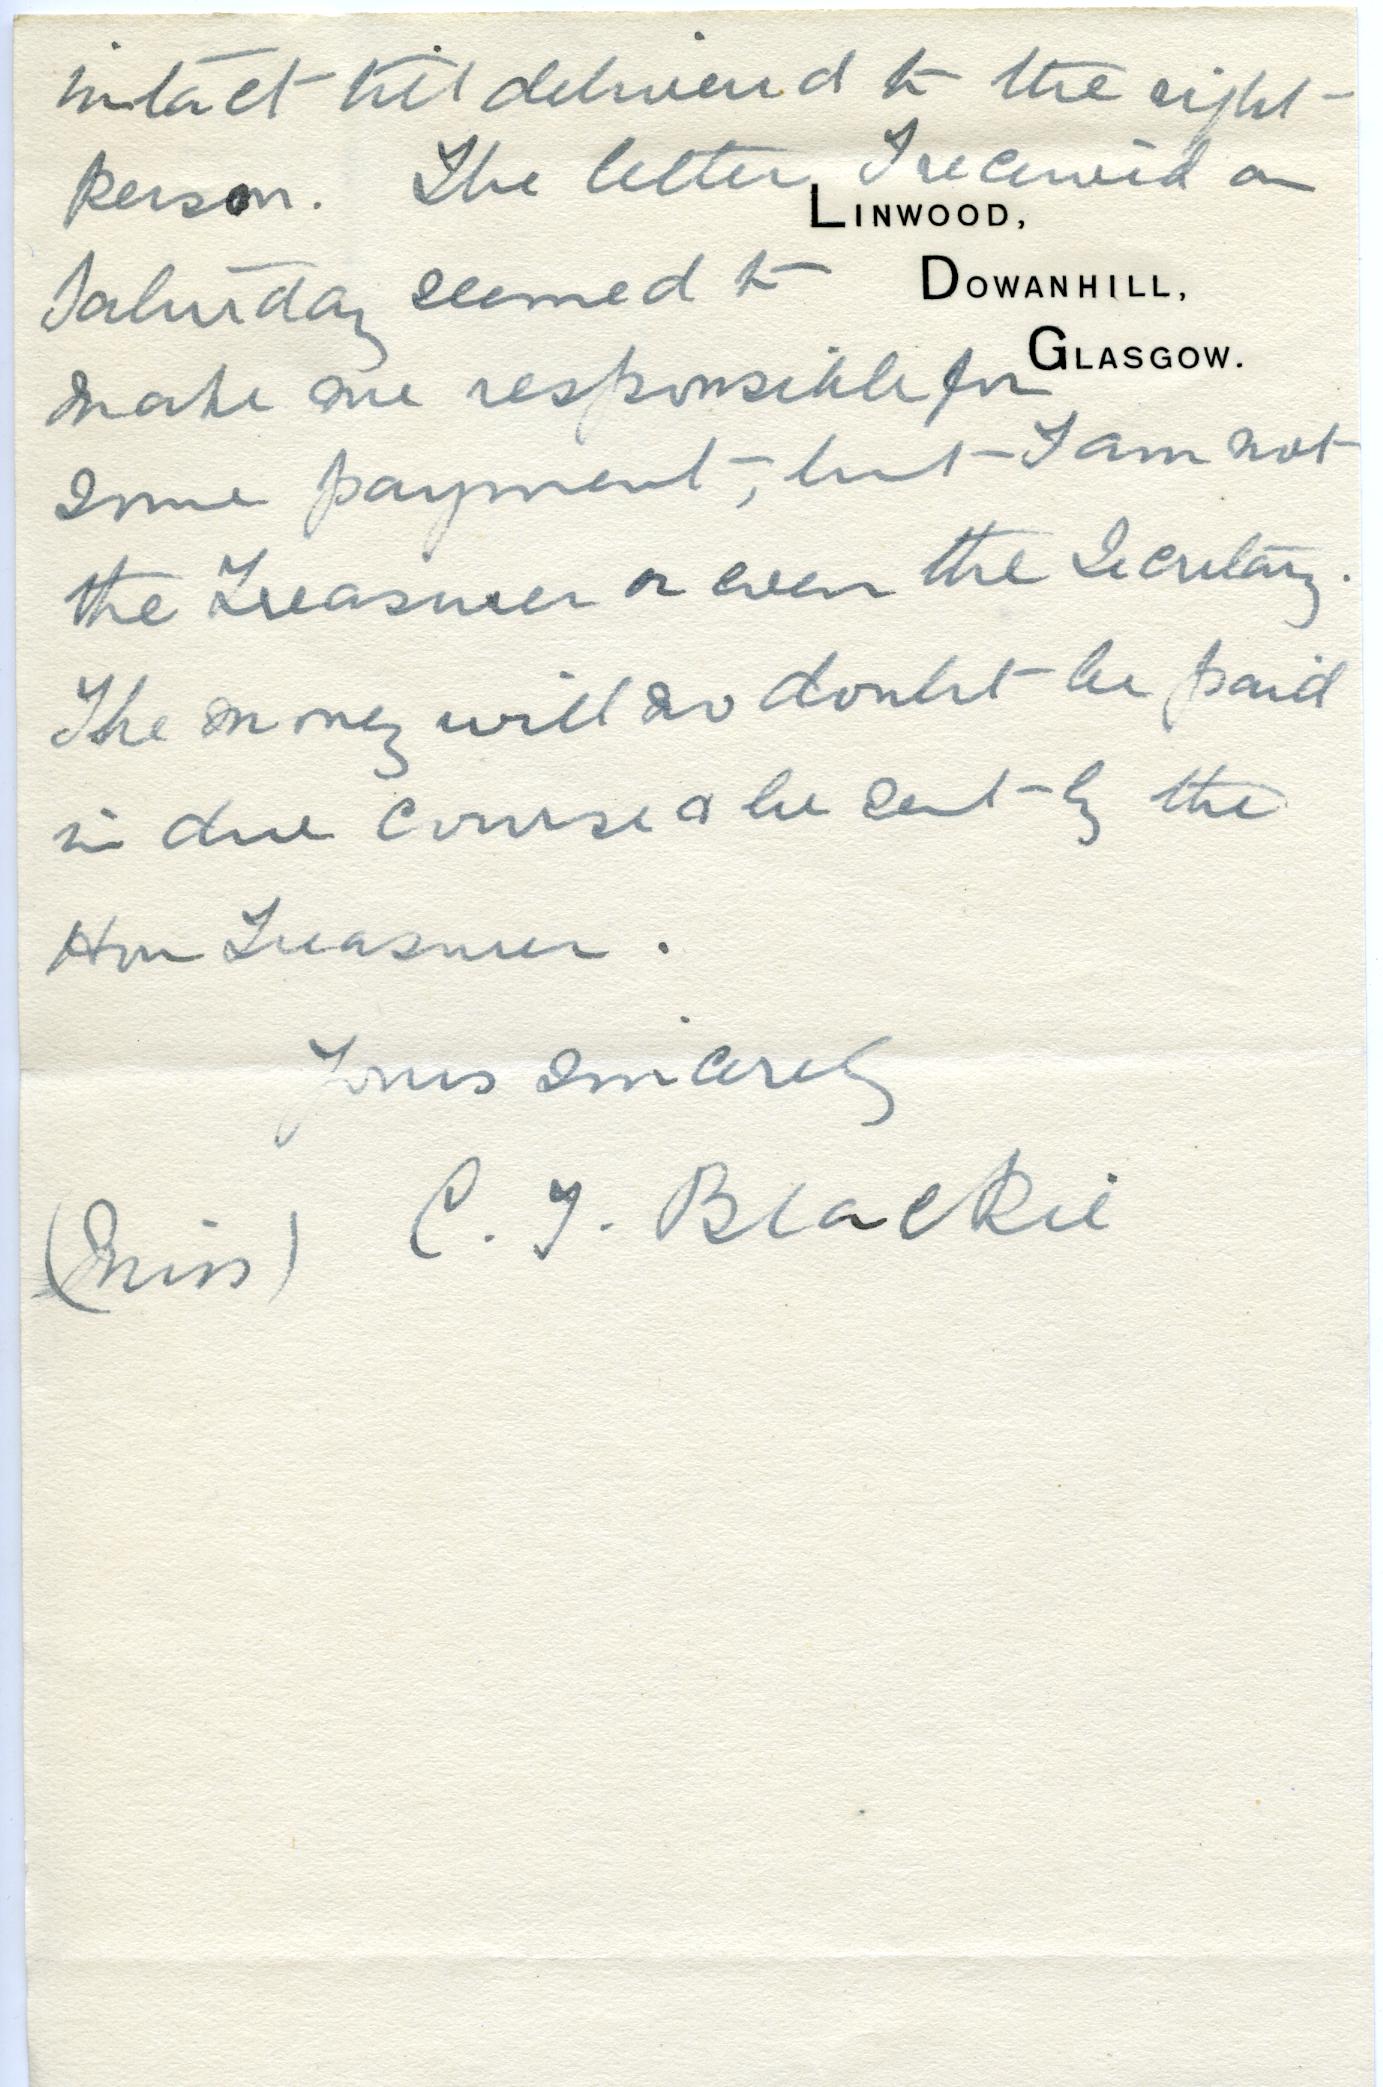 intact till delivered to the right
person. The letter I received on
LINWOOD,
Saturday seemed to
DOWANHILL,
GLASGOW.
make me responsible for
some payment, but I am not
the Treasurer or even the Secretary.
The money will no doubt be paid
in due course & be sent by the
Hon Treasurer.
Yours sincerely
(Miss) C. J. Blackie